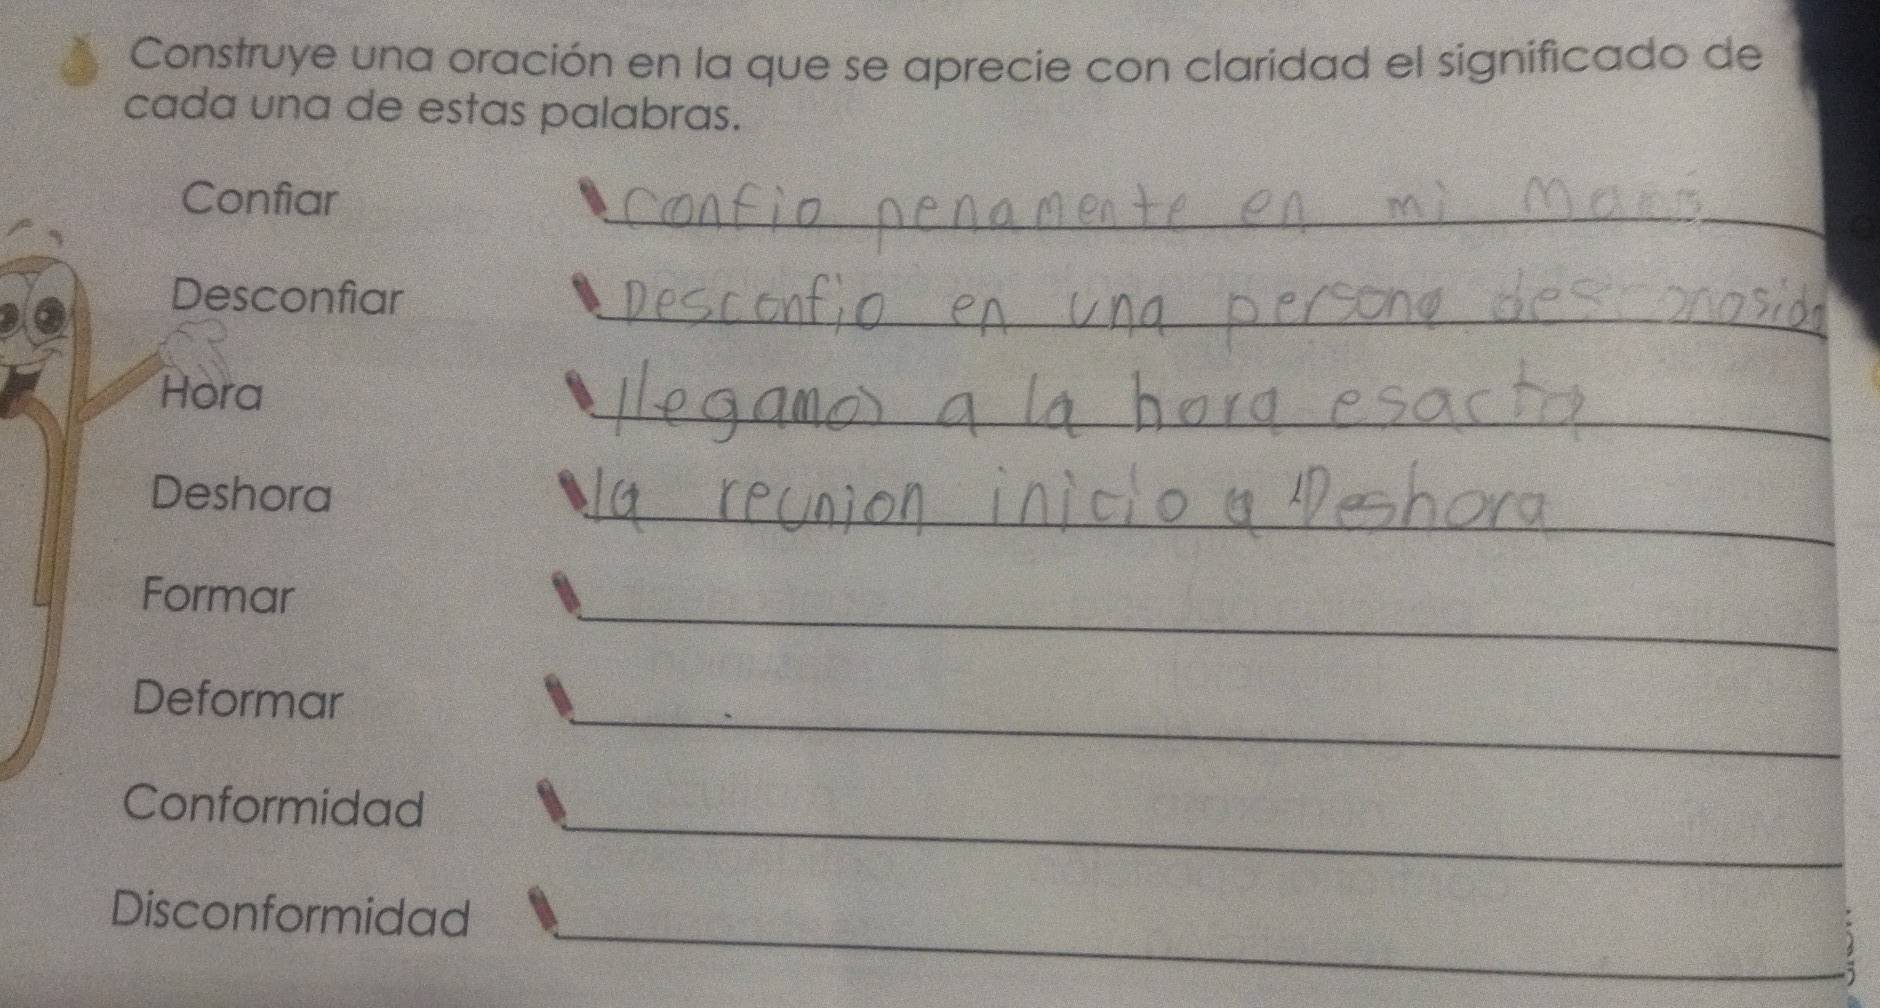 Construye una oración en la que se aprecie con claridad el significado de
cada una de estas palabras.
Confiar confio penamente en mi
Desconfiar Desconfio en una persona desconosida
Hora llegamos a la hora esacta
Deshora la reunion inicio a Deshora
Formar
Deformar
Conformidad
Disconformidad